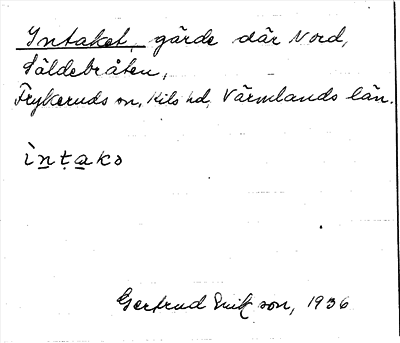 Intaket, gärde där Nord,
Säldebråten,
Frykeruds sn, Kils hd, Värmlands län.
ìntako
Gertrud Erikson, 1936